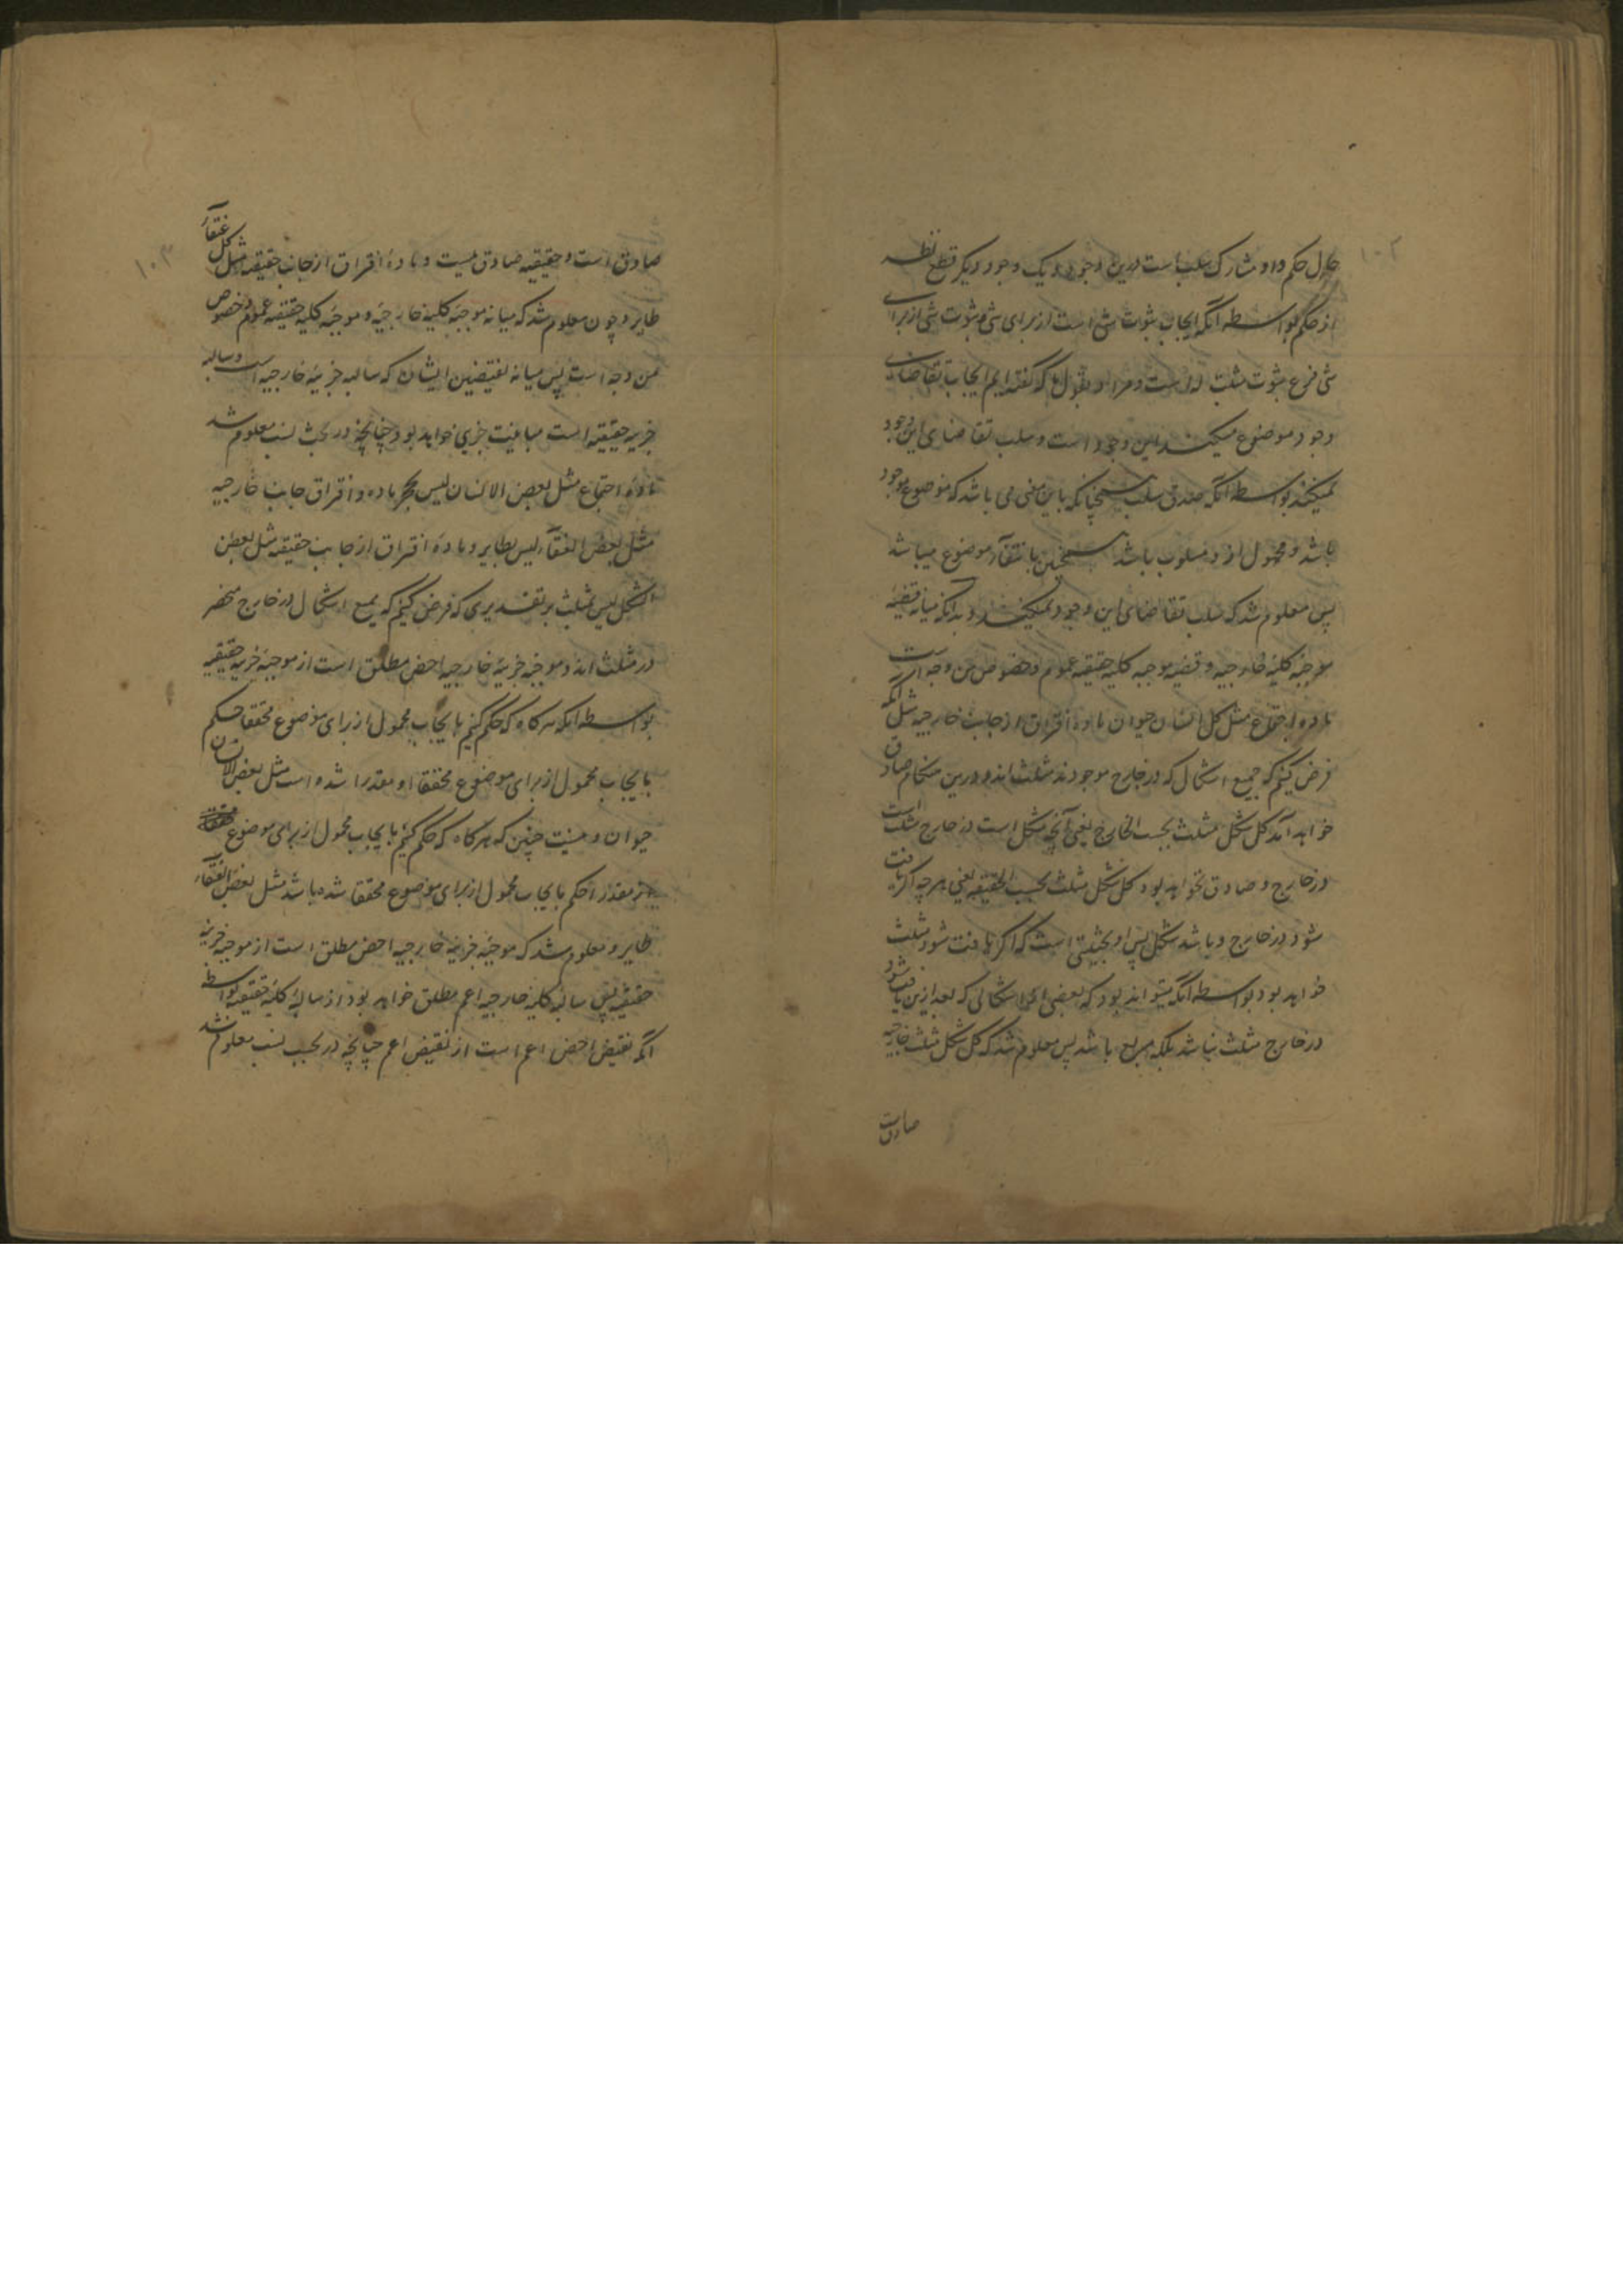 ۱۰۲
حال حکم و او مشارک سلب است درین وجود و یک وجود دیگر قطع نظر
از حکم بواسطه آنکه ایجاب ثبوت شی است از برای شی و ثبوت شی از برای
شی فرع ثبوت مثبت له است و مراد بقول ما که گفته ایم ایجاب تقاضای
وجود موضوع میکند این وجود است و سلب تقاضای این وجود
نمیکند بواسطه آنکه صدق سلب همچنانکه باین معنی می باشد که موضوع موجود
باشد و محمول ازو مسلوب باشد همچنین بانتفاء موضوع میباشد
پس معلوم شد که سلب تقاضای این وجود نمیکند و بدانکه میانه قضیه
موجبه کلیه خارجیه و قضیه موجبه کلیه حقیقیه عموم و خصوص من وجه است
ماده اجتماع مثل کل انسان حیوان ماده افتراق از جانب خارجیه مثل آنکه
فرض کنیم که جمیع اشکال که در خارج موجودند مثلث اند و درین هنگام صادق
خواهد آمد کل شکل مثلث بحسب الخارج یعنی آنچه شکل است در خارج مثلث است
در خارج و صادق نخواهد بود کل شکل مثلث بحسب الحقیقه یعنی هر چه اگر یافت
شود در خارج و باشد شکل پس او بحیثیتی است که اگر یافت شود مثلث
خواهد بود بواسطه آنکه میتواند بود که بعضی اشکالی که بعد ازین یافت شود
در خارج مثلث نباشد بلکه مربع باشد پس معلوم شد که کل شکل مثلث خارجیه
صادقست
۱۰۳
صادق است و حقیقیه صادق نیست و ماده افتراق از جانب حقیقیه مثل کل عنقاء
طایر و چون معلوم شد که میانه موجبه کلیه خارجیه و موجبه کلیه حقیقیه عموم و خصوص
من وجه است پس میانه نقیضین ایشان که سالبه جزییه خارجیه است و سالبه
جزییه حقیقیه است مباینت جزیی خواهد بود چنانچه در بحث نسب معلوم شد
ماده اجتماع مثل بعض الانسان لیس بحجر ماده افتراق جانب خارجیه
مثل بعض العنقاء لیس بطایر و ماده افتراق از جانب حقیقیه مثل بعض
الشکل لیس بمثلث بر تقدیری که فرض کنیم که جمیع اشکال در خارج منحصر
در مثلث اند و موجبه جزییه خارجیه اخص مطلق است از موجبه جزییه حقیقیه
بواسطه آنکه هرگاه که حکم کنیم بایجاب محمول از برای موضوع محققا حکم
بایجاب محمول از برای موضوع محققا او مقدرا شده است مثل بعض الانسان
حیوان و نیست چنین که هرگاه که حکم کنیم بایجاب محمول از برای موضوع
مقدرا حکم بایجاب محمول از برای موضوع محققا شده باشد مثل بعض العنقاء
طایر و معلوم شد که موجبه جزییه خارجیه اخص مطلق است از موجبه جزییه
حقیقیه پس سالبه کلیه خارجیه اعم مطلق خواهد بود از سالبه کلیه حقیقیه بواسطه
آنکه نقیض اخص اعم است از نقیض اعم چنانچه در بحث نسب معلوم شد